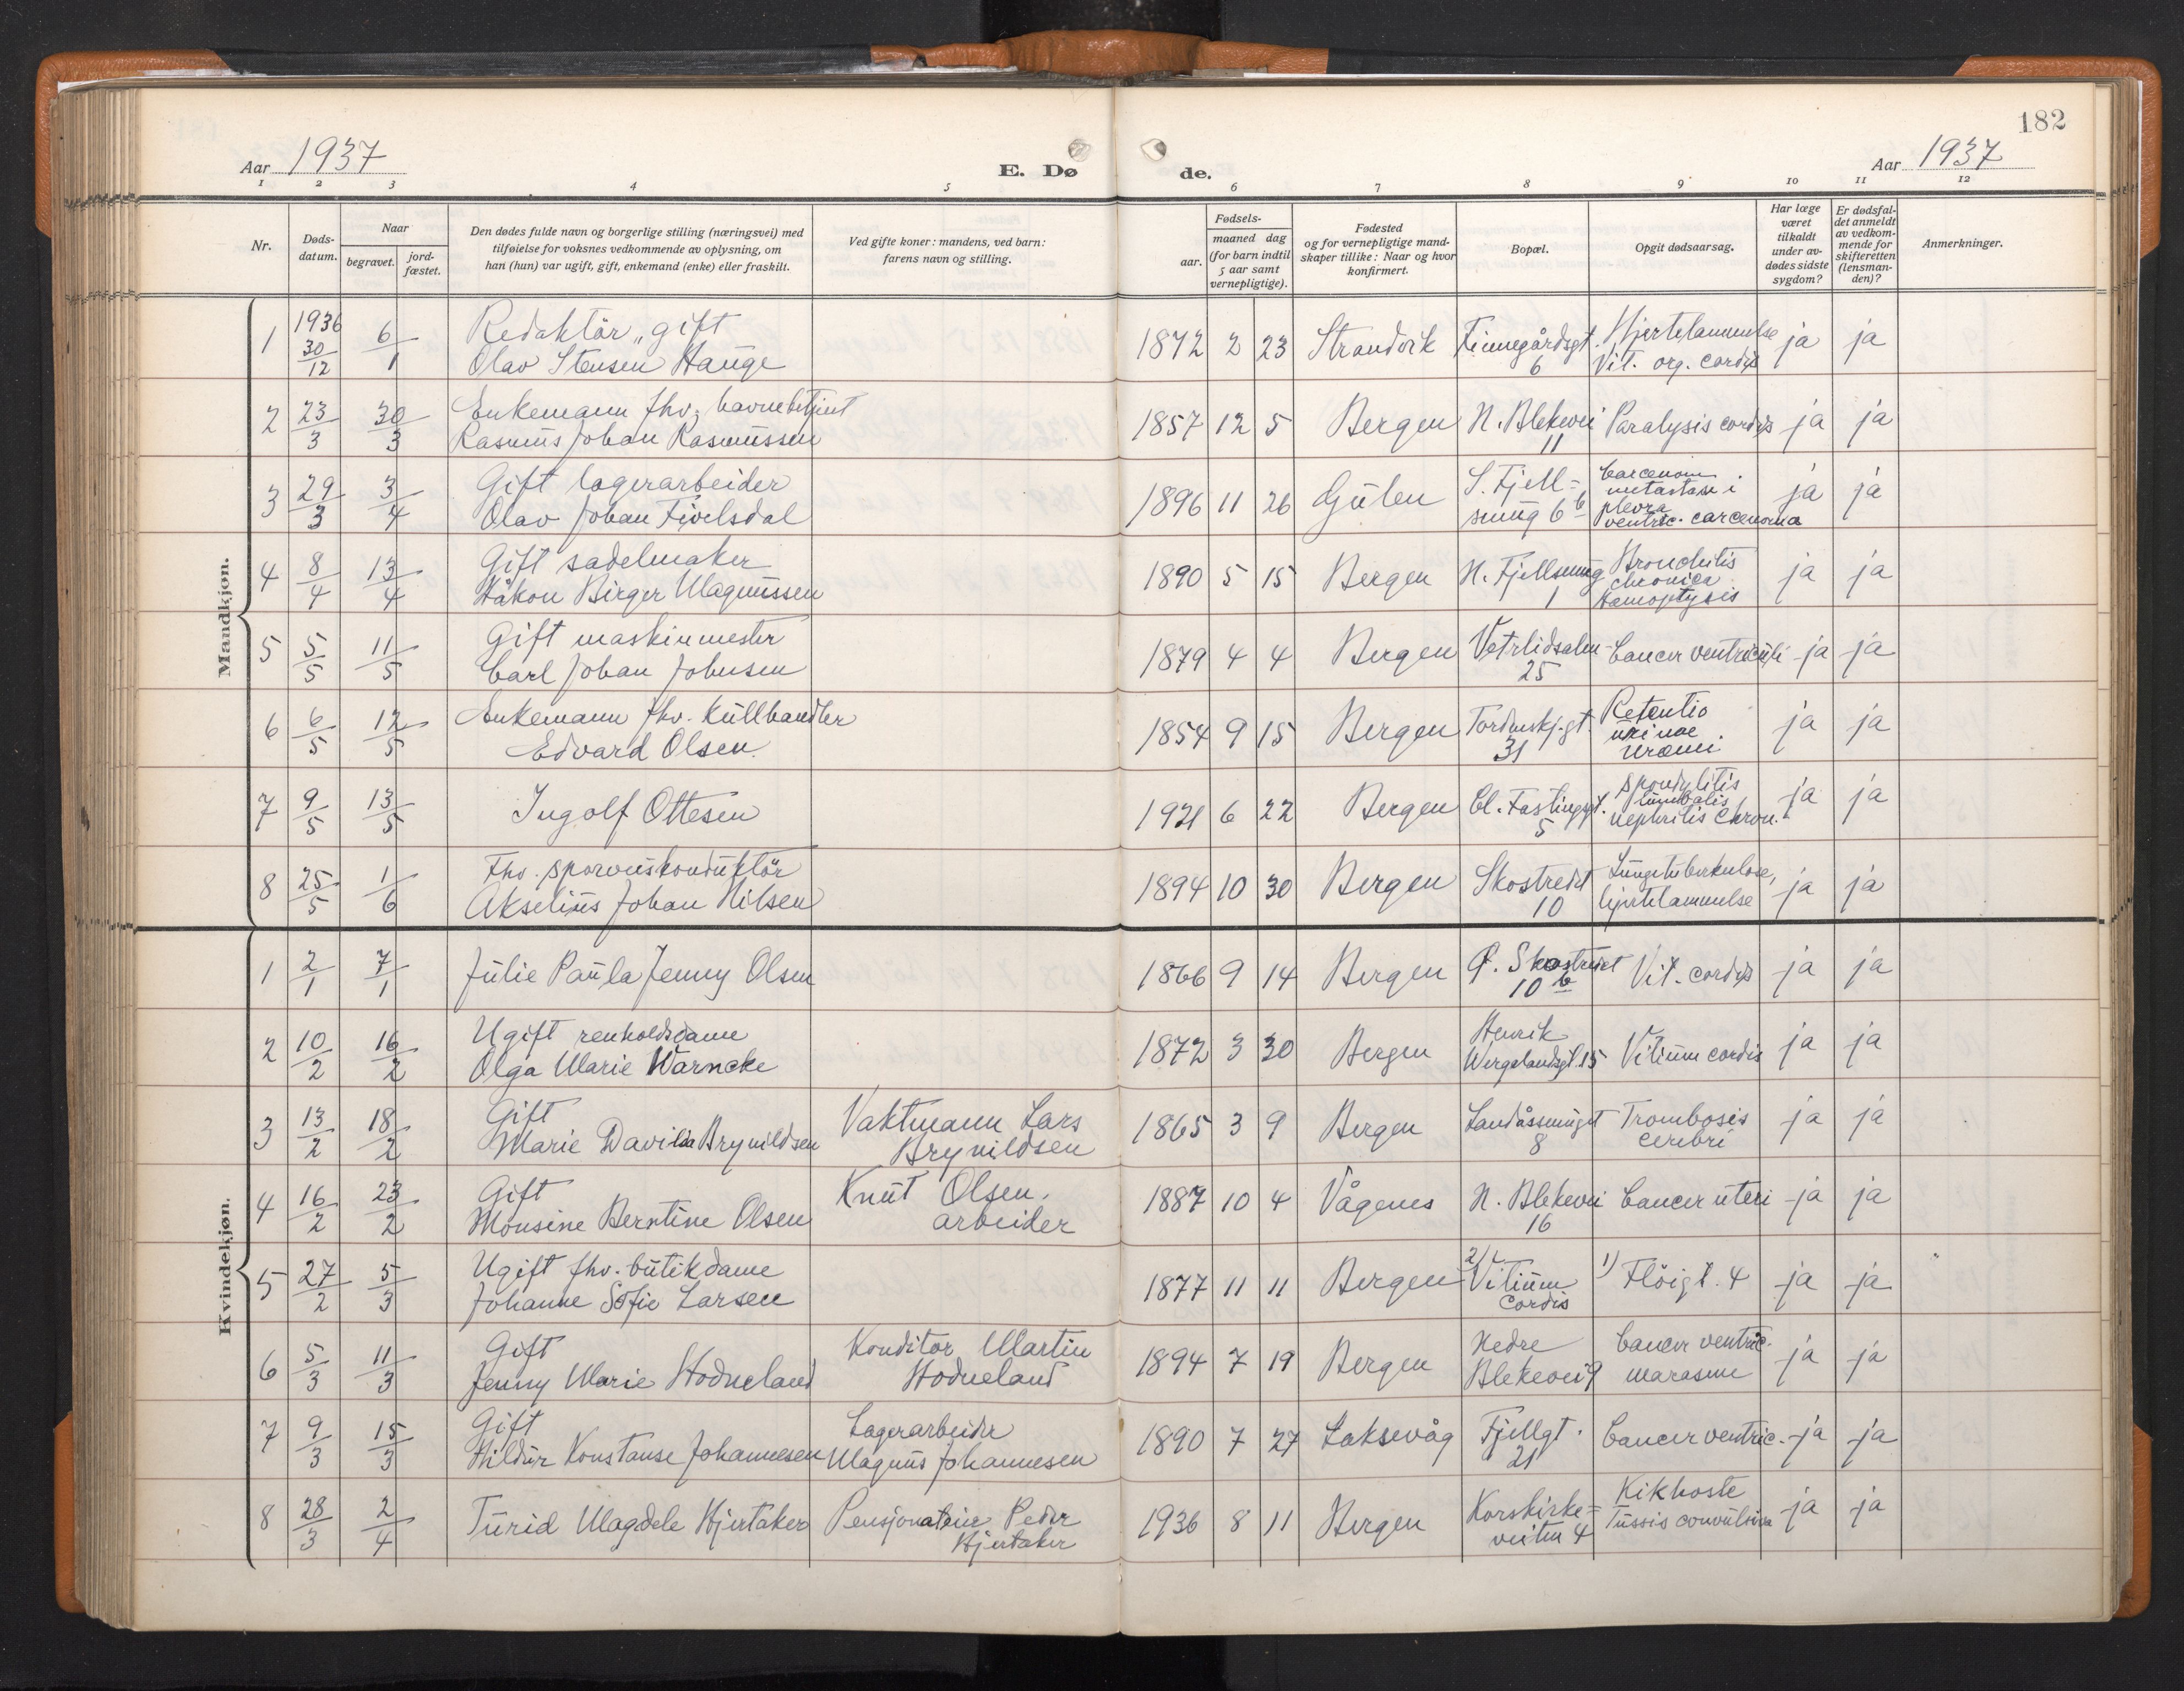 182
Aar 1937
E. Dø
de.
Aar 1937
1 2 3 4 5 6 7 8 9 10 11 12
Nr.
Døds-
datum.
Naar
begravet.
jord-
fæstet.
Den dødes fulde navn og borgerlige stilling (næringsvei) med
tilføielse for voksnes vedkommende av oplysning, om
han (hun) var ugift, gift, enkemand (enke) eller fraskilt.
Ved gifte koner: mandens, ved barn:
farens navn og stilling.
Fødsels-
aar.
maaned dag
(for barn indtil
5 aar samt
vernepligtige).
Fødested
og for vernepligtige mand-
skaper tillike: Naar og hvor
konfirmert.
Bopæl.
Opgit dødsaarsag.
Har læge
været
tilkaldt
under av-
dødes sidste
sygdom?
Er dødsfal-
det anmeldt
av vedkom-
mende for
skifteretten
(lensman-
den)?
Anmerkninger.
Mandkjøn.
1 1936 30/12 6/1 Redaktör, gift
Olav Stensen Hauge
1872 2 23 Strandvik Finnegårdsgt. 6 Hjertelammelse
Vit. org. cordis ja ja
2 23/3 30/3 Enkemann fhv. havnebetjent
Rasmus Johan Rasmussen
1857 12 5 Bergen N. Blekevei 11 Paralysis cordis ja ja
3 29/3 3/4 Gift lagerarbeider
Olav Johan Fivelsdal
1896 11 26 Gulen S. Fjell=
smug 6b Carcenom
metastase i
plevra
ventric. carcenoma ja ja
4 8/4 13/4 Gift sadelmaker
Håkon Birger Magnussen
1890 5 15 Bergen N. Fjellsmug 1 Bronchitis
chronica
Hamoptysis ja ja
5 5/5 11/5 Gift maskinmester
Carl Johan Johnsen
1879 4 4 Bergen Vetrlidsalm 25 Cancer ventriculi ja ja
6 6/5 12/5 Enkemann fhv. kullhandler
Edvard Olsen
1854 9 15 Bergen Tordenskj.gt. 31 Retentio
urinae
uræmi ja ja
7 9/5 13/5 Ingolf Ottesen
1921 6 22 Bergen Cl. Fastingsgt. 5 Spondylitis
lumbalis
nephritis chron. ja ja
8 25/5 1/6 Fhv. sporveiskonduktör
Akselius Johan Nilsen
1894 10 30 Bergen Skostredet 10 Lungetuberkulose,
hjertelammelse ja ja
Kvindekjøn.
1 2/1 7/1 Julie Paula Jenny Olsen
1866 9 14 Bergen Ø. Skostredet
10b Vit. cordis ja ja
2 10/2 16/2 Ugift renholdsdame
Olga Marie Warncke
1872 3 30 Bergen Henrik
Wergelandsgt. 15 Vitium cordis ja ja
3 13/2 18/2 Gift
Marie Davilia Brynildsen
Vaktmann Lars
Brynildsen
1865 3 9 Bergen Landåssmuget 8 Trombosis
cerebri ja ja
4 16/2 23/2 Gift
Monsine Berntine Olsen
Knut Olsen.
arbeider
1887 10 4 Vågenes N. Blekevei 16 Cancer uteri ja ja
5 27/2 5/3 Ugift fhv. butikdame
Johanne Sofie Larsen
1877 11 11 Bergen 2) Vitium
Cordis 1) Flöigt. 4 ja ja
6 5/3 11/3 Gift
Jenny Marie Hodneland
Konditor Martin
Hodneland
1894 7 19 Bergen Nedre
Blekevei 9 Cancer ventric.
marasme ja ja
7 9/3 15/3 Gift
Hildur Konstanse Johannesen
Lagerarbeider
Magnus Johannesen
1890 7 27 Laksevåg Fjellgt. 21 Cancer ventric. ja ja
8 28/3 2/4 Turid Magdele Hjertaker
Peder
Hjertaker
1936 8 11 Bergen Korskirke=
veiten 4 Kikhoste
Tussis convulsiva ja ja